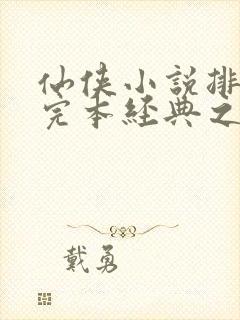 仙侠小说排
完本经典之
戴勇